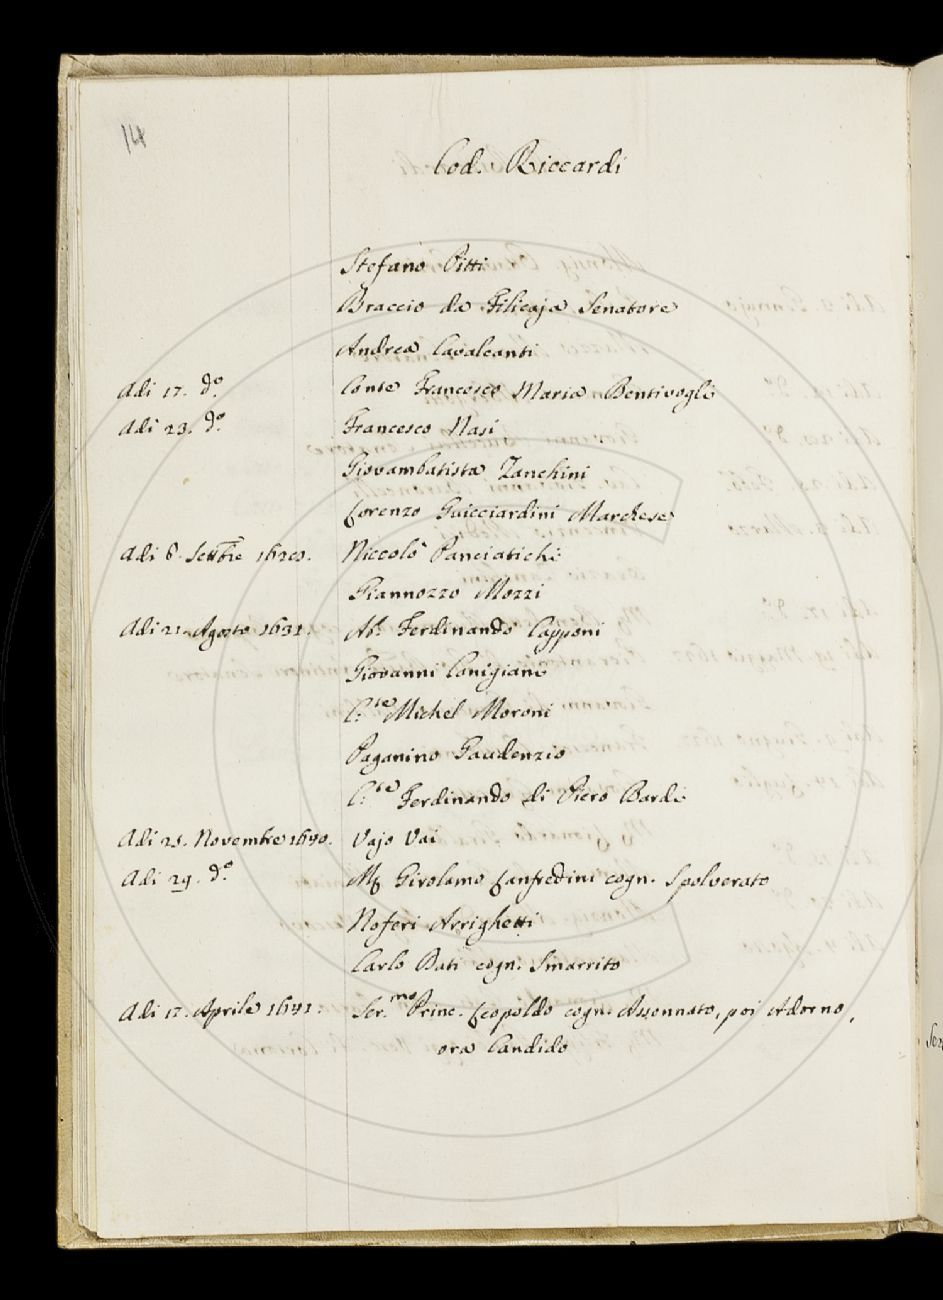 14
Cod. Riccardi
Stefano Pitti
Braccio da Filicaja Senatore
Andrea Cavalcanti
Adi 17. do. Conte Francesco Maria Bentivogli
Adi 23. do. Francesco Nasi
Giovambatista Zanchini
Lorenzo Guicciardini Marchese
Adi 6. Settbre Niccolò Panciatichi
Giannozzo Mozzi
Adi 21. Agosto 1631. Ab. Ferdinando Capponi
Giovanni Canigiani
C.te Michel Moroni
Paganino Gaudenzio
C.te Ferdinando di Piero Bardi
Adi 21. Novembre 1640. Vajo Vai
Adi 29. do. Mr Girolamo Lanfredini cogn. Spolverato
Noferi Arrighetti
Carlo Bati cogn. Smarrito
Adi 17. Aprile 1641. Ser.mo Princ. Leopoldo cogn. Assonnato, poi Adorno,
ora Candido